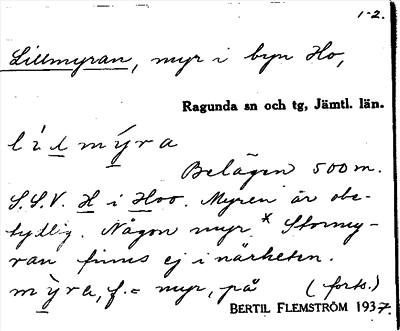 1-2.
Lillmyran, myr i byn Ho,
Ragunda sn och tg, Jämtl. län.
lilmýra
Belägen 500 m.
S.S.V. H i Hoo. Myren är obe-
tydlig. Någon myr * Stormy-
ran finns ej i närheten.
mỳra, f. = myr, på (forts.)
BERTIL FLEMSTRÖM 1937.